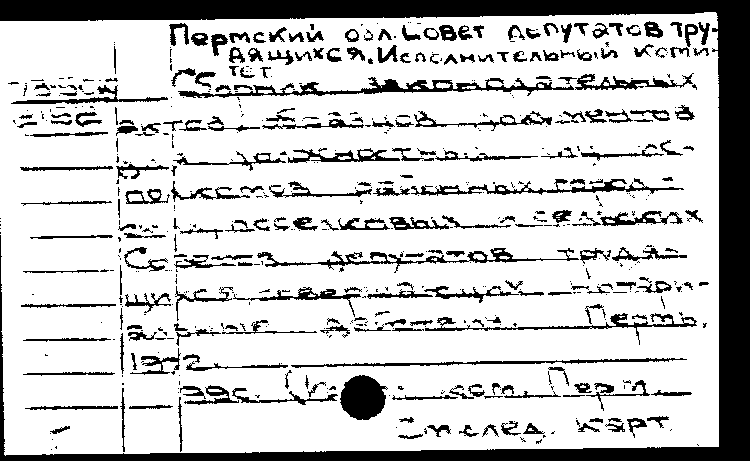 Пермский обл. Совет депутатов тру-
дящихся. Исполнительный коми-
тет
Сборник законодательных
актов, образцов документов
для должностных лиц ис-
полкомов районных, город-
ских, поселковых и сельских
Советов депутатов трудя-
щихся, совершающих нотари-
альные действия. Пермь,
1972.
99с. ком. Перм.
См след. карт